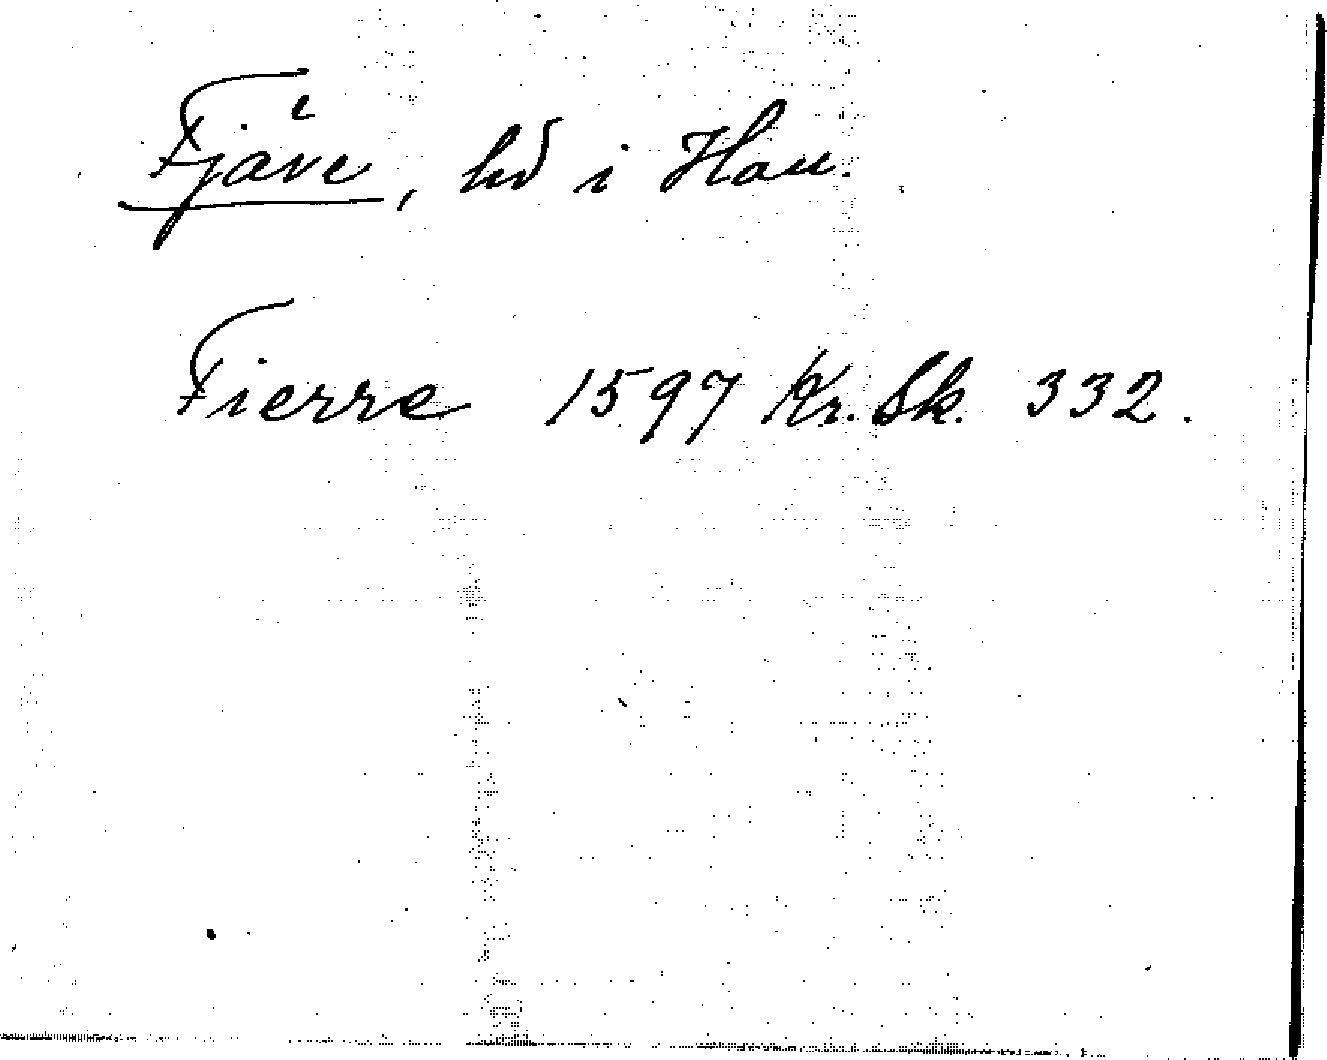 Fjäre, hd i Hall.
Fierre 1597 Kr. Sk. 332.